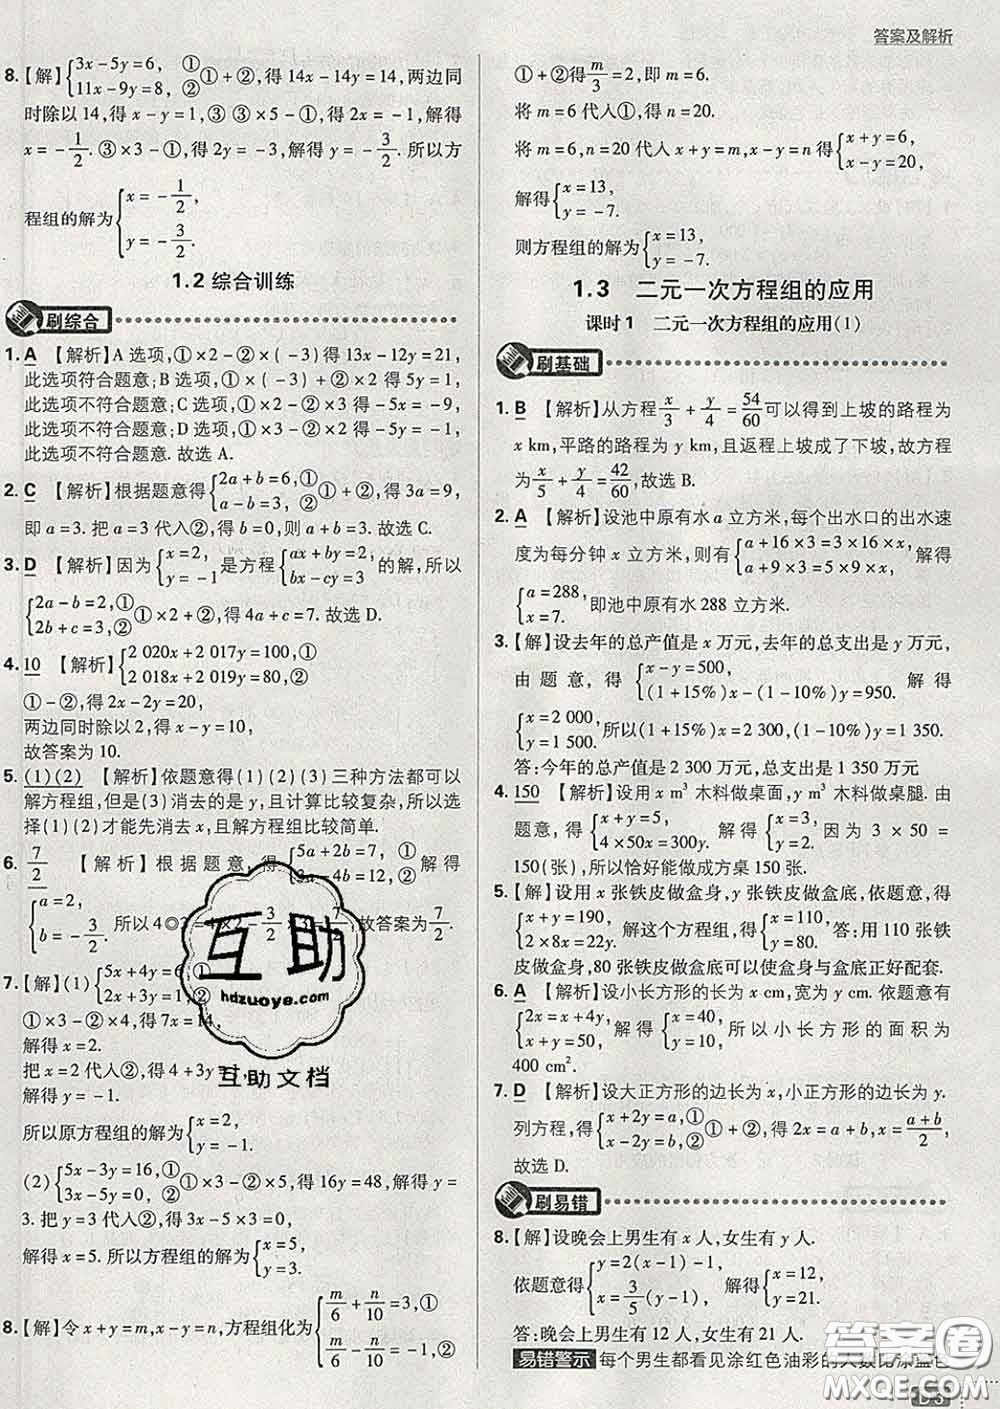 答案及解析
8.【解】{3x-5y=6, ① 11x-9y=8, ② ①+②,得 14x-14y=14,两边同
时除以 14,得 x-y=1,③ ③×5-①,得 2x=-1,解得
x=-1/2. ③×3-①,得 2y=-3,解得 y=-3/2. 所以方
程组的解为{x=-1/2, y=-3/2.
1.2 综合训练
刷综合
1. A 【解析】A 选项,①×2-②×(-3)得 13x-12y=21,
此选项符合题意;B 选项,①×(-3)+②×2 得 5y=-9,
此选项不符合题意;C 选项,①×2-②×3 得-5x=-9,
此选项不符合题意;D 选项,①×2-②,得 x+6y=-3,
此选项不符合题意. 故选 A.
2. C 【解析】根据题意得{2a+b=6,① a-b=3,② ①+②,得 3a=9,
即 a=3. 把 a=3 代入②,得 b=0,则 a+b=3. 故选 C.
3. D 【解析】因为{x=2, y=-1是方程{ax+by=2, bx-cy=3的解,所以
{2a-b=2,① 2b+c=3,② ①×2+②,得 4a+c=7. 故选 D.
4. 10 【解析】{2 020x+2 017y=100,① 2 018x+2 019y=80,②
①-②,得 2x-2y=20,
两边同时除以 2,得 x-y=10,
故答案为 10.
5. (1)(2) 【解析】依题意得(1)(2)(3)三种方法都可以
解方程组,但是(3)消去的是 y,且计算比较复杂,所以选
择(1)(2)才能先消去 x,且解方程组比较简单.
6. 7/2 【解析】根据题意,得{5a+2b=7,① 3b=16,② 解得
{a=2, b=-3/2. 所以 4◎3=4×2-3/2×3=7/2,故答案为7/2.
7.【解】(1){5x+4y=6,① 2x+3y=1,②
①×3-②×4,得 7x=14,
解得 x=2.
把 x=2 代入②,得 4+3y=
解得 y=-1.
所以原方程组的解为{x=2, y=-1.
(2){5x-3y=16,① 5x-9y=-2,② ①×3-②,得 10x-16y=48,解得 y=
3. 把 y=3 代入②,得 3x-9=-2+
解得 x=5. 所以方程组的解为{x=5, y=3.
8.【解】令 x+y=m,x-y=n,方程组化为{m/6+n/10=3,① m/6-n/10=-1,②
①+②得 m/3=2,即 m=6.
将 m=6 代入①,得 n=20.
将 m=6,n=20 代入 x+y=m,x-y=n 得{x+y=6, x-y=20,
解得{x=13, y=-7.
则方程组的解为{x=13, y=-7.
1.3 二元一次方程组的应用
课时 1 二元一次方程组的应用(1)
刷基础
1. B 【解析】从方程x/3+y/4=54/60可以得到上坡的路程为
x km,平路的路程为 y km,且返程上坡成了下坡,故方程
为x/5+y/4=42/60,故选 B.
2. A 【解析】设池中原有水 a 立方米,每个出水口的出水速
度为每分钟 x 立方米,则有{a+16×3=3×16x, a+9×3=5×9x. 解得
{a=288, x=7. 即池中原有水 288 立方米.
3.【解】设去年的总产值是 x 万元,去年的总支出是 y 万元,
由题意,得{x-y=500, (1+15%)x-(1-10%)y=950. 解得
{x=2 000, y=1 500.所以(1+15%)x=2 300,(1-10%)y=1 350.
答:今年的总产值是 2 300 万元,总支出是 1 350 万元
4. 150 【解析】设用 x m³ 木料做桌面,y m³ 木料做桌腿. 由
题意,得{x+y=5, 4×50x=300y. 解得{x=3, y=2. 因为 3×50=
150(张),所以恰好能做成方桌 150 张.
5.【解】设用 x 张铁皮做盒身,y 张铁皮做盒底,依题意,得
{x+y=190, 2×8x=22y. 解这个方程组,得{x=110, y=80. 答:用 110 张铁
皮做盒身,80 张铁皮做盒底可以使盒身与盒底正好配套.
6. A 【解析】设小长方形的长为 x cm,宽为 y cm. 依题意有
解得 所以小长方形的面积为
400 cm².
7. D 【解析】设大正方形的边长为 x,小正方形的边长为 y,
列方程,得{x+2y=a,① x-2y=b,② ①+②,得 2x=a+b,x=(a+b)/2,
故选 D.
刷易错
8.【解】设晚会上男生有 x 人,女生有 y 人.
依题意得{y=2(x-1)-1, x=3/5(y-1). 解得{x=12, y=21.
答:晚会上男生有 12 人,女生有 21 人.
易错警示 每个男生都看见涂红色油彩的人数比涂蓝色
D 3
互助
hdzuoye.com
互助文档
答案圈
MXQE.COM